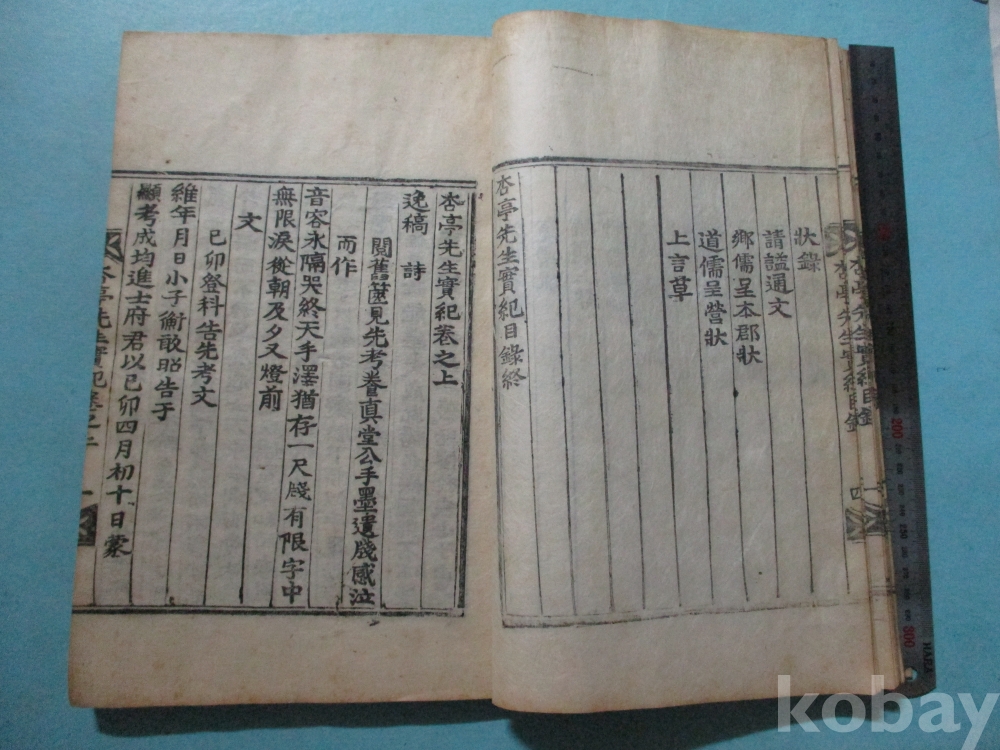 杏亭先生實紀目錄
四
狀錄
請謚通文
鄉儒呈本郡狀
道儒呈營狀
上言草
杏亭先生實紀目錄終
杏亭先生實紀卷之上
逸稿 詩
閱舊篋見先考眷真堂公手墨遺牋感泣
而作
音容永隔哭終天手澤猶存一尺牋有限字中
無限淚從朝及夕又燈前
文
己卯登科告先考文
維年月日小子衡敢昭告于
顯考成均進士府君以己卯四月初十日蒙
杏亭先生實紀卷之上
一
200
300
kobay